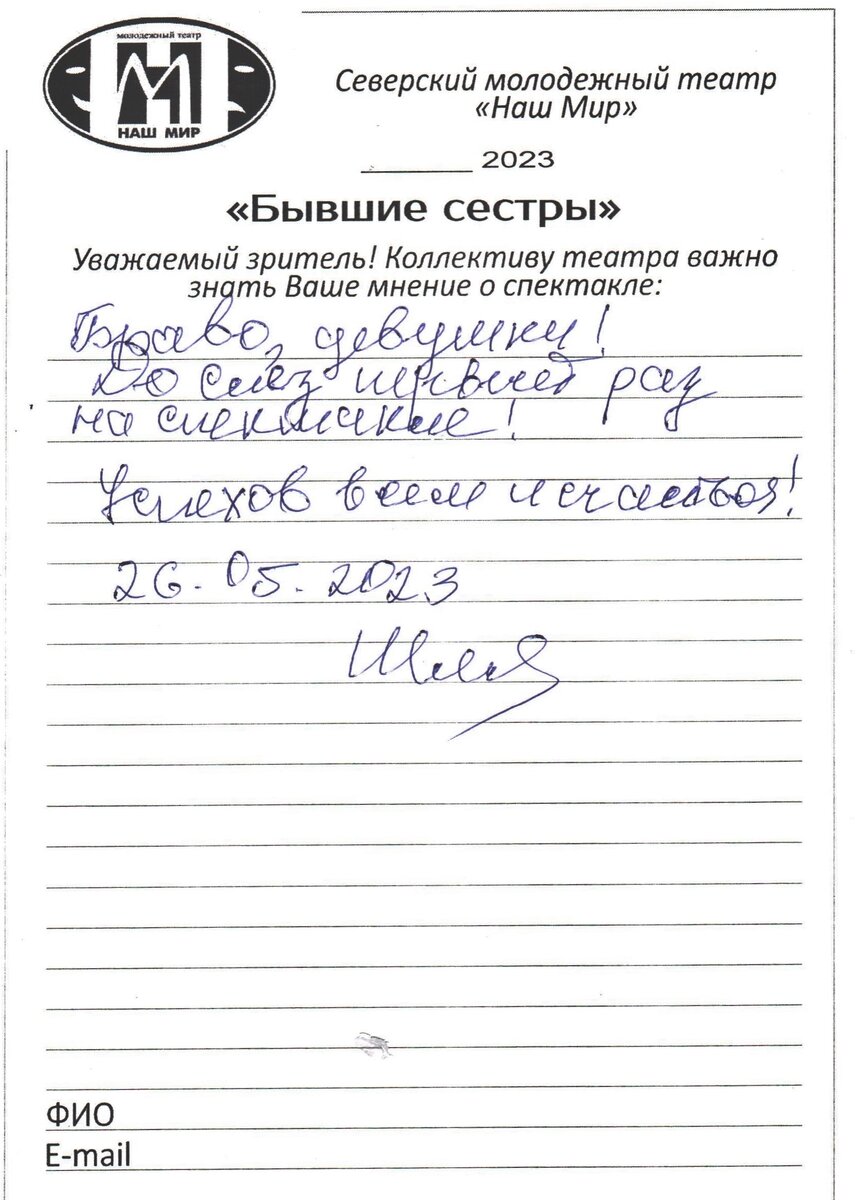 молодежный театр
НАШ МИР
Северский молодежный театр
«Наш Мир»
_______ 2023
«Бывшие сестры»
Уважаемый зритель! Коллективу театра важно
знать Ваше мнение о спектакле:
Браво, девушки!
До слез первый раз
на спектакле!
Успехов всем и счастья!
26.05.2023
ФИО
E-mail